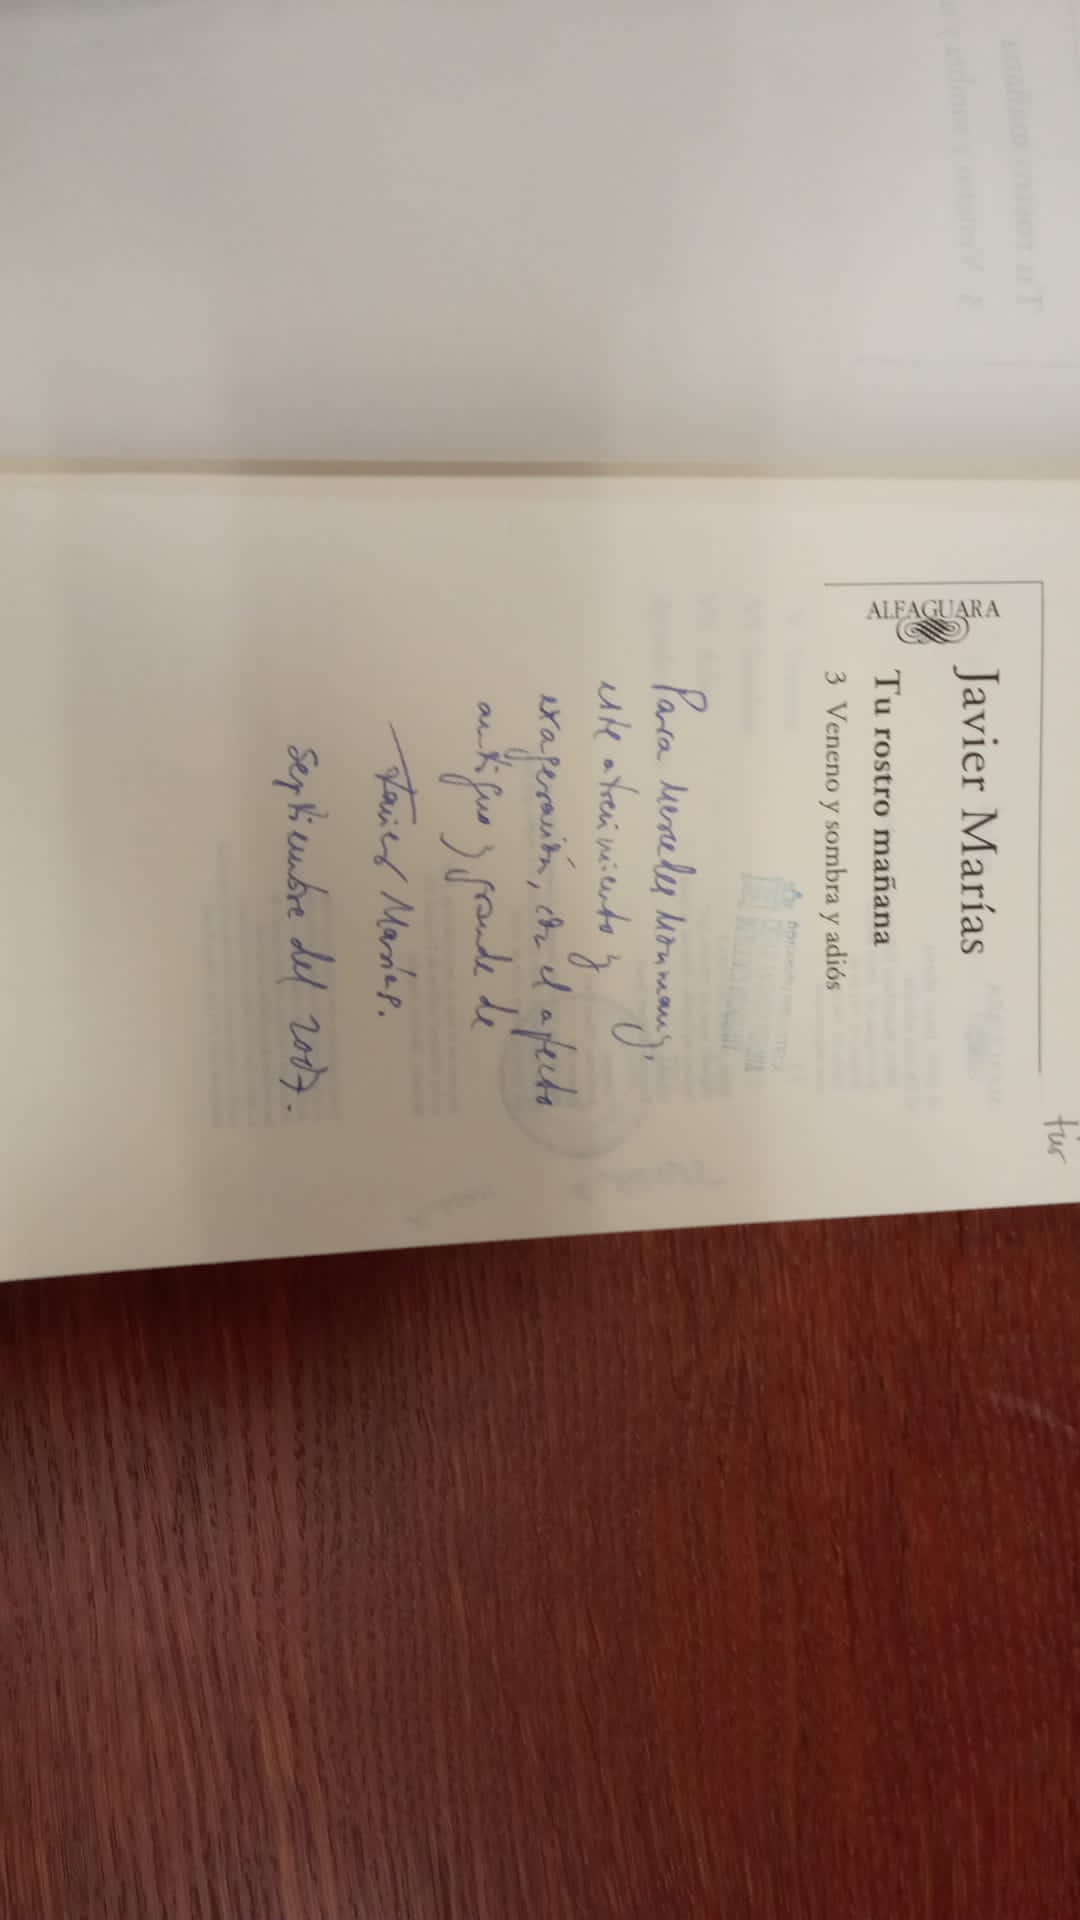 ALFAGUARA
Javier Marías
Tu rostro mañana
3 Veneno y sombra y adiós
Para Mercedes Monmany,
este atrevimiento y
exageración, con el afecto
antiguo y grande de
Javier Marías.
Septiembre del 2007.
Tu rostro mañana